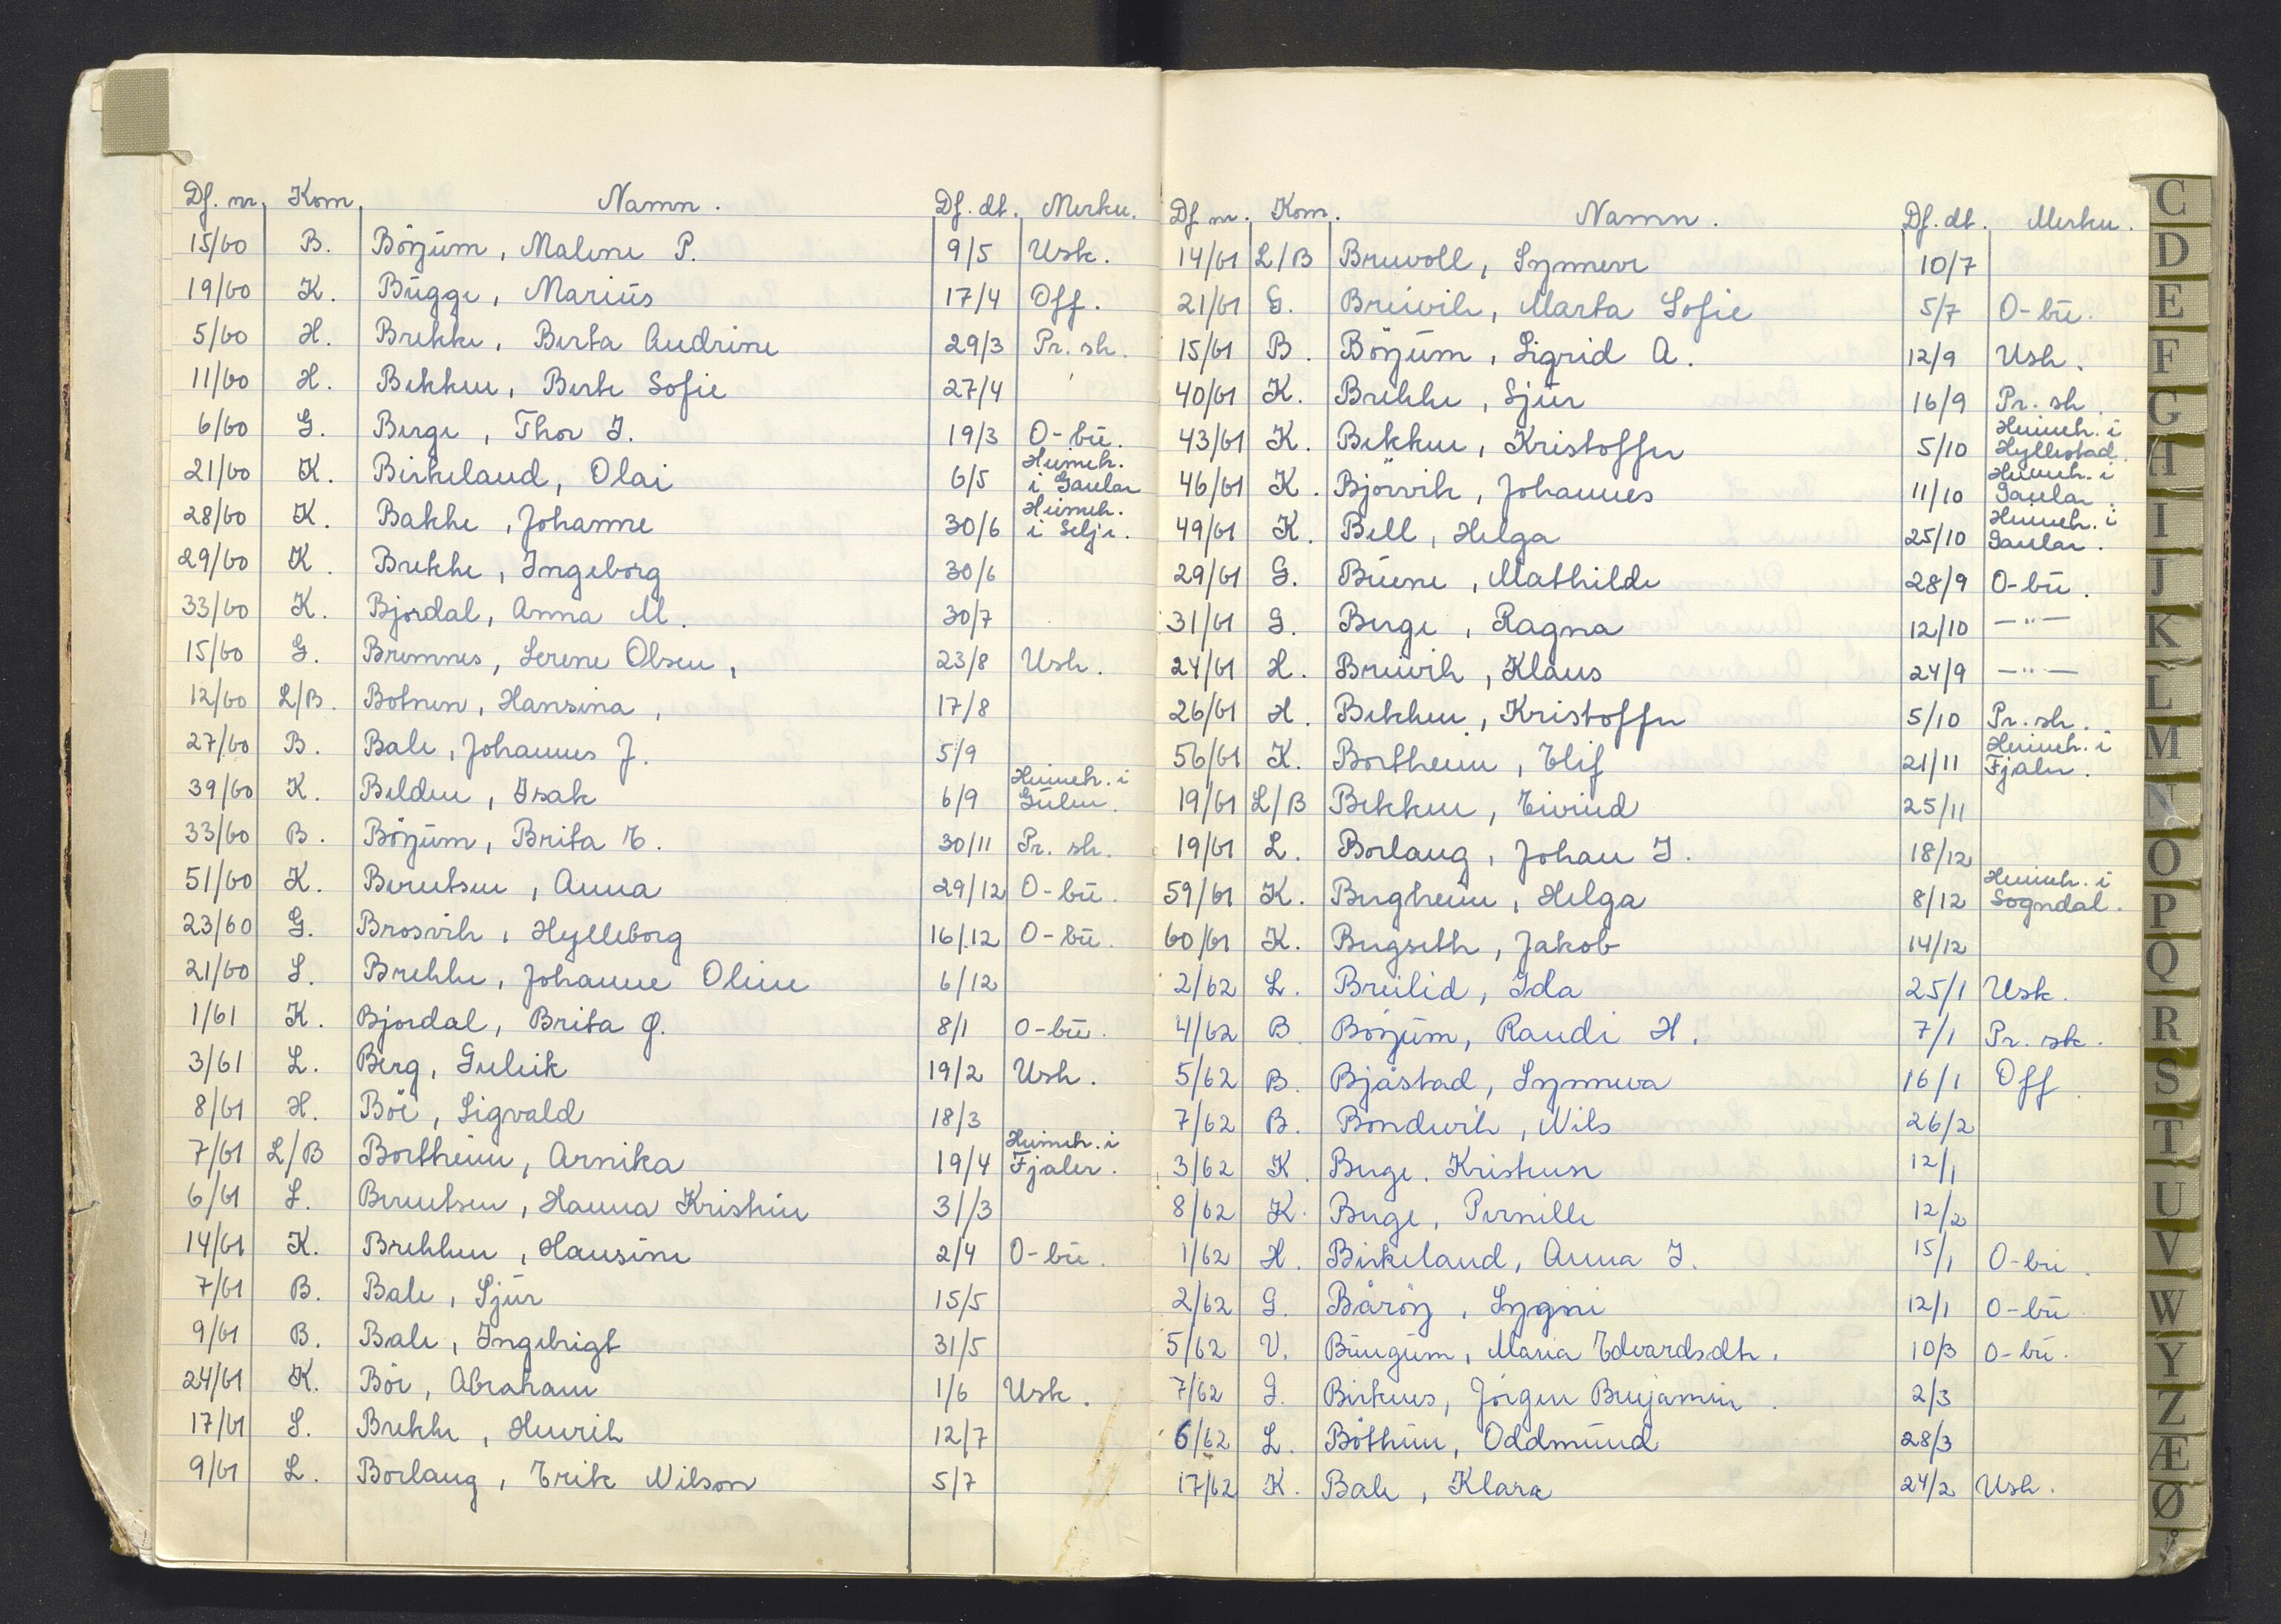 Df. nr. Kom. Namn. Df. dt. Merkn.
15/60 B. Böyum, Malene P. 9/5 Usk.
19/60 K. Bugge, Marius 17/4 Off.
5/60 H. Brekke, Berta Audrine 29/3 Pr. sk.
11/60 H. Bekken, Berte Sofie 27/4
6/60 G. Berge, Thor I. 19/3 O-bu.
21/60 K. Birkeland, Olai 6/5 Heimeh. i Gaular
28/60 K. Bakke, Johanne 30/6 Heimeh. i Selje.
29/60 K. Brekke, Ingeborg 30/6
33/60 K. Bjordal, Anna M. 30/7
15/60 G. Bremnes, Serene Olsen, 23/8 Usk.
12/60 L/B. Botnen, Hansina, 17/8
27/60 B. Bale, Johannes J. 5/9
39/60 K. Belden, Isak 6/9 Heimeh. i Gulen.
33/60 B. Böyum, Brita E. 30/11 Pr. sk.
51/60 K. Berntsen, Anna 29/12 O-bu.
23/60 G. Brosvik, Hylleborg 16/12 O-bu.
21/60 L. Brekke, Johanne Oline 6/12
1/61 K. Bjordal, Brita Ø. 8/1 O-bu.
3/61 L. Berg, Guleik 19/2 Usk.
8/61 H. Böe, Sigvald 18/3
7/61 L/B Bortheim, Arnika 19/4 Heimeh. i Fjaler.
6/61 L. Berntsen, Hanna Kristin 31/3
14/61 K. Brekken, Hansine 2/4 O-bu.
7/61 B. Bale, Sjur 15/5
9/61 B. Bale, Ingebrigt 31/5
24/61 K. Böe, Abraham 1/6 Usk.
17/61 L. Brekke, Henrik 12/7
9/61 L. Borlaug, Erik Nilson 5/7
Df nr. Kom. Namn. Df. dt. Merkn.
14/61 L/B Bruvoll, Synneve 10/7
21/61 G. Breivik, Marta Sofie 5/7 O-bu.
15/61 B. Böyum, Sigrid A. 12/9 Usk.
40/61 K. Brekke, Sjur 16/9 Pr. sk.
43/61 K. Bekken, Kristoffer 5/10 Heimeh. i Hyllestad.
46/61 K. Björvik, Johannes 11/10 Heimeh. i Gaular.
49/61 K. Bell, Helga 25/10 Heimeh. i Gaular.
29/61 G. Buene, Mathilde 28/9 O-bu.
31/61 G. Berge, Ragna 12/10 —"—
24/61 H. Breivik, Klaus 24/9 —"—
26/61 H. Bekken, Kristoffer 5/10 Pr. sk.
56/61 K. Bortheim, Elif 21/11 Heimeh. i Fjaler.
19/61 L/B Bekken, Eivind 25/11
19/61 L. Borlaug, Johan I. 18/12
59/61 K. Bergheim, Helga 8/12 Heimeh. i Sogndal.
60/61 K. Bergseth, Jakob 14/12
2/62 L. Breilid, Ida 25/1 Usk.
4/62 B. Böyum, Randi H. 7/1 Pr. sk.
5/62 B. Bjåstad, Synneva 16/1 Off.
7/62 B. Bondevik, Nils 26/2
3/62 K. Berge. Kristense 12/1
8/62 K. Berge, Pernille 12/2
1/62 H. Birkeland, Anna I. 15/1 O-bu.
2/62 G. Båröy, Sygni 12/1 O-bu
5/62 V. Bungum, Maria Edvardsdtr. 10/3 O-bu.
7/62 G. Birknes, Jörgen Benjamin. 2/3
6/62 L. Böthun, Oddmund 28/3
17/62 K. Bale, Klara 24/2 Usk.
C
D
E
F
G
H
I
J
K
L
M
N
O
P
Q
R
S
T
U
V
W
Y
Z
Æ
Ø
Å